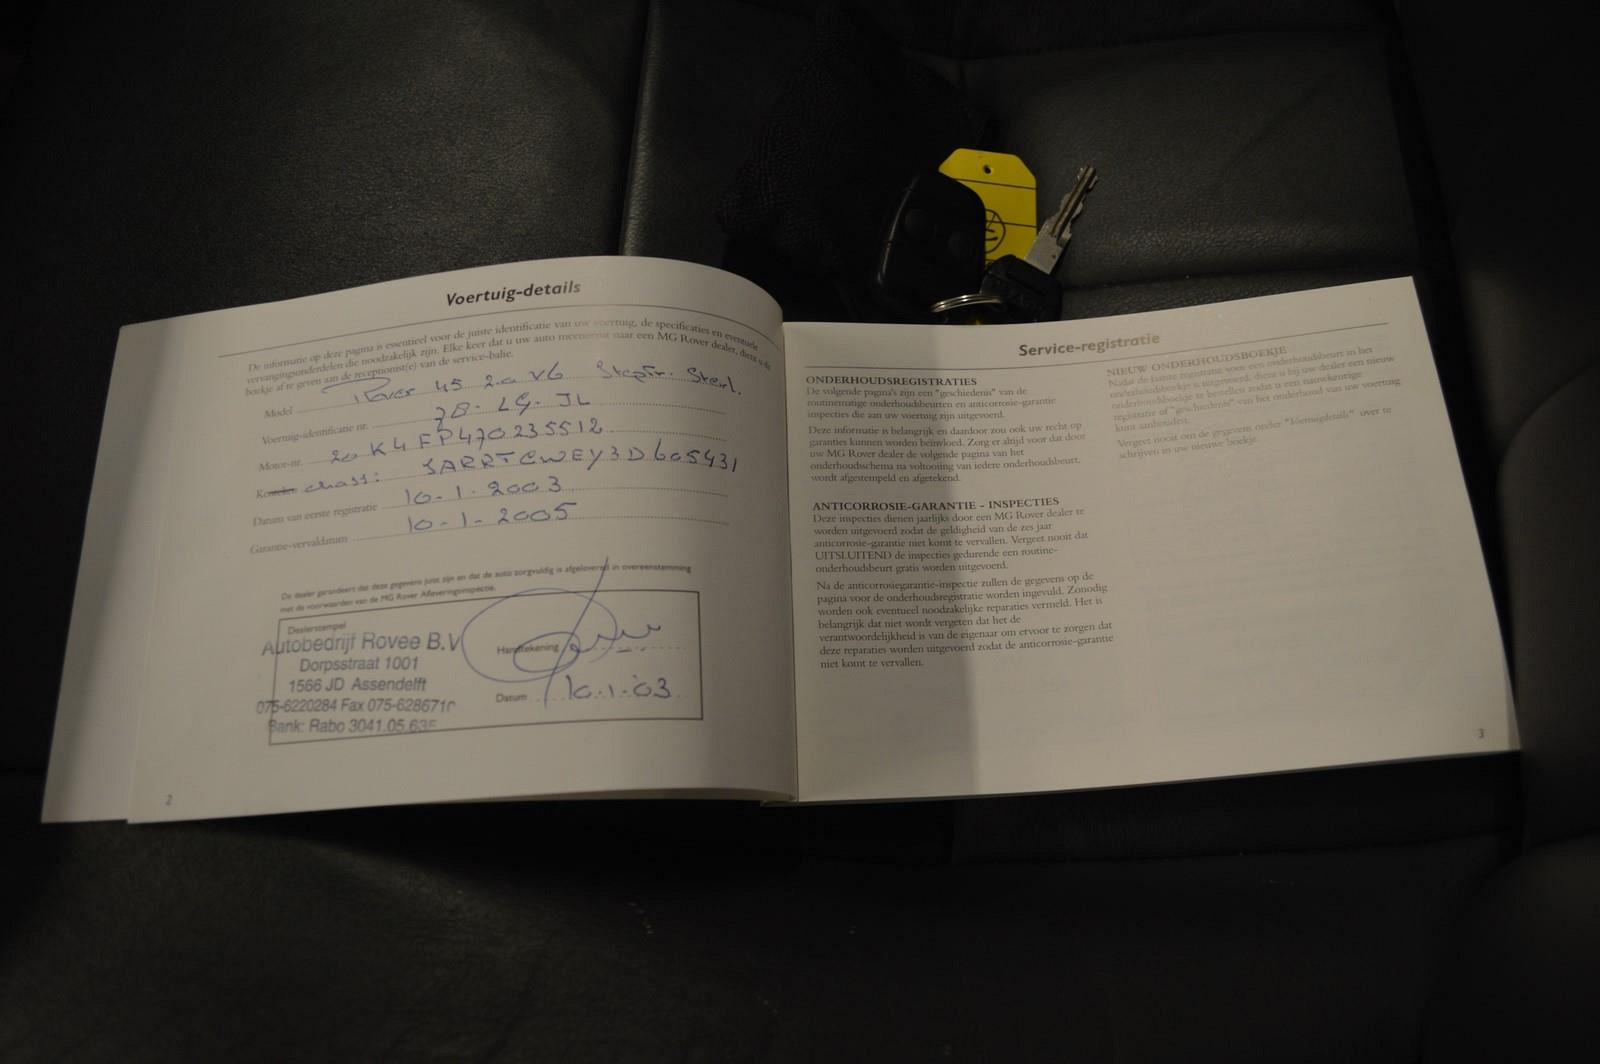 Voertuig-details
De informatie op deze pagina is essentieel voor de juiste identificatie van uw voertuig, de specificaties en eventuele
vervangingsonderdelen die noodzakelijk zijn. Elke keer dat u uw auto meeneemt naar een MG Rover dealer, dient u dit
boekje af te geven aan de receptionist(e) van de service-balie.
Model Rover 45 2.0 V6 Steptr. Sterl.
Voertuig-identificatie nr. JL
Motor-nr. 20K4FP470235512
chass: SARRTCWEY3D605431
Datum van eerste registratie 10-1-2003
Garantie-vervaldatum 10-1-2005
De dealer garandeert dat deze gegevens juist zijn en dat de auto zorgvuldig is afgeleverd in overeenstemming
met de voorwaarden van de MG Rover Afleveringsinspectie.
Dealerstempel
Autobedrijf Rovee B.V
Dorpsstraat 1001
1566 JD Assendelft
075-6220284 Fax 075-628671
Bank: Rabo 3041.05.635
Handtekening
Datum 10-1-'03
2
Service-registratie
ONDERHOUDSREGISTRATIES
De volgende pagina's zijn een "geschiedenis" van de
routinematige onderhoudsbeurten en anticorrosie-garantie
inspecties die aan uw voertuig zijn uitgevoerd.
Deze informatie is belangrijk en daardoor zou ook uw recht op
garanties kunnen worden beïnvloed. Zorg er altijd voor dat door
uw MG Rover dealer de volgende pagina van het
onderhoudschema na voltooiing van iedere onderhoudsbeurt,
wordt afgestempeld en afgetekend.
ANTICORROSIE-GARANTIE - INSPECTIES
Deze inspecties dienen jaarlijks door een MG Rover dealer te
worden uitgevoerd zodat de geldigheid van de zes jaar
anticorrosie-garantie niet komt te vervallen. Vergeet nooit dat
UITSLUITEND de inspecties gedurende een routine-
onderhoudsbeurt gratis worden uitgevoerd.
Na de anticorrosiegarantie-inspectie zullen de gegevens op de
pagina voor de onderhoudsregistratie worden ingevuld. Zonodig
worden ook eventueel noodzakelijke reparaties vermeld. Het is
belangrijk dat niet wordt vergeten dat het de
verantwoordelijkheid is van de eigenaar om ervoor te zorgen dat
deze reparaties worden uitgevoerd zodat de anticorrosie-garantie
niet komt te vervallen.
NIEUW ONDERHOUDSBOEKJE
Nadat de laatste registratie voor een onderhoudsbeurt in het
onderhoudboekje is uitgevoerd, dient u bij uw dealer een nieuw
onderhoudboekje te bestellen zodat u een nauwkeurige
registratie of "geschiedenis" van het onderhoud van uw voertuig
kunt aanhouden.
Vergeet nooit om de gegevens onder "Voertuigdetails" over te
schrijven in uw nieuwe boekje.
3